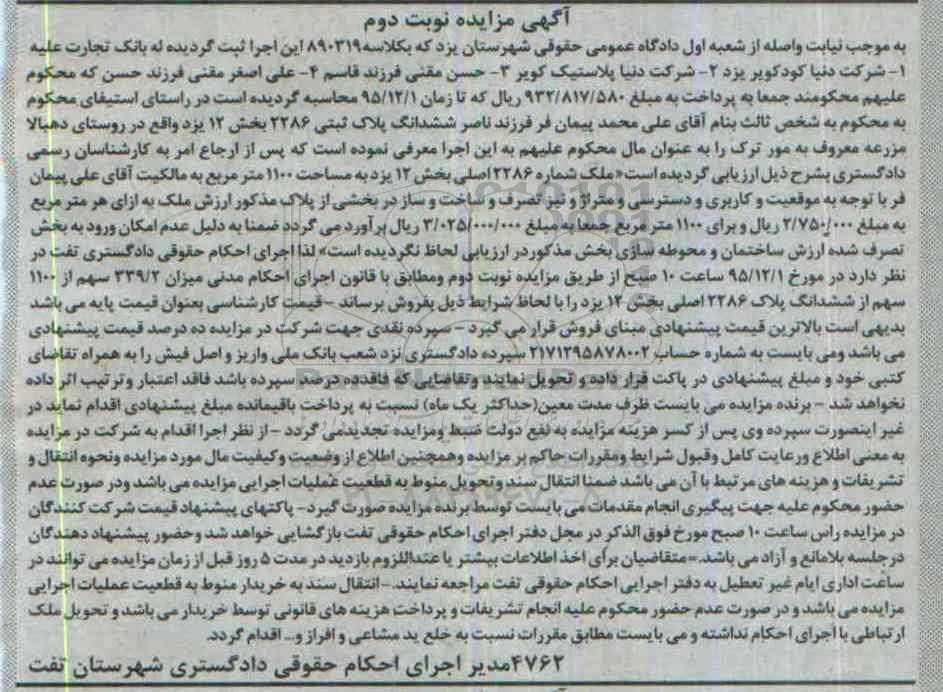 آگهی مزایده نوبت دوم
به موجب نیابت واصله از شعبه اول دادگاه عمومی حقوقی شهرستان یزد که بکلاسه۸۹۰۳۱۹ این اجرا ثبت گردیده له بانک تجارت علیه
۱- شرکت دنیا کودکویر یزد ۲- شرکت دنیا پلاستیک کویر ۳- حسن مقنی فرزند قاسم ۴- علی اصغر مقنی فرزند حسن که محکوم
علیهم محکومند جمعا به پرداخت به مبلغ ۹۳۲/۸۱۷/۵۸۰ ریال که تا زمان ۹۵/۱۲/۱ محاسبه گردیده است در راستای استیفای محکوم
به محکوم به شخص ثالث بنام آقای علی محمد پیمان فر فرزند ناصر ششدانگ پلاک ثبتی ۲۲۸۶ بخش ۱۲ یزد واقع در روستای دهبالا
مزرعه معروف به مور ترک را به عنوان مال محکوم علیهم به این اجرا معرفی نموده است که پس از ارجاع امر به کارشناسان رسمی
دادگستری بشرح ذیل ارزیابی گردیده است«ملک شماره ۲۲۸۶اصلی بخش ۱۲ یزد به مساحت ۱۱۰۰ متر مربع به مالکیت آقای علی پیمان
فر با توجه به موقعیت و کاربری و دسترسی و متراژ و نیز تصرف و ساخت و ساز در بخشی از پلاک مذکور ارزش ملک به ازای هر متر مربع
به مبلغ ۲/۷۵۰/۰۰۰ ریال و برای ۱۱۰۰ متر مربع جمعا به مبلغ ۳/۰۲۵/۰۰۰/۰۰۰ ریال برآورد می گردد ضمنا به دلیل عدم امکان ورود به بخش
تصرف شده ارزش ساختمان و محوطه سازی بخش مذکوردر ارزیابی لحاظ نگردیده است» لذا اجرای احکام حقوقی دادگستری تفت در
نظر دارد در مورخ ۹۵/۱۲/۱ ساعت ۱۰ صبح از طریق مزایده نوبت دوم ومطابق با قانون اجرای احکام مدنی میزان ۳۳۹/۲ سهم از ۱۱۰۰
سهم از ششدانگ پلاک ۲۲۸۶ اصلی بخش ۱۲ یزد را با لحاظ شرایط ذیل بفروش برساند -قیمت کارشناسی بعنوان قیمت پایه می باشد
بدیهی است بالاترین قیمت پیشنهادی مبنای فروش قرار می گیرد - سپرده نقدی جهت شرکت در مزایده ده درصد قیمت پیشنهادی
می باشد ومی بایست به شماره حساب ۲۱۷۱۲۹۵۸۷۸۰۰۲ سپرده دادگستری نزد شعب بانک ملی واریز و اصل فیش را به همراه تقاضای
کتبی خود و مبلغ پیشنهادی در پاکت قرار داده و تحویل نمایند وتقاضایی که فاقدده درصد سپرده باشد فاقد اعتبار وترتیب اثر داده
نخواهد شد - برنده مزایده می بایست ظرف مدت معین(حداکثر یک ماه) نسبت به پرداخت باقیمانده مبلغ پیشنهادی اقدام نماید در
غیر اینصورت سپرده وی پس از کسر هزینه مزایده به نفع دولت ضبط ومزایده تجدیدمی گردد -از نظر اجرا اقدام به شرکت در مزایده
به معنی اطلاع ورعایت کامل وقبول شرایط ومقررات حاکم بر مزایده وهمچنین اطلاع از وضعیت وکیفیت مال مورد مزایده ونحوه انتقال و
تشریفات و هزینه های مرتبط با آن می باشد ضمنا انتقال سند وتحویل منوط به قطعیت عملیات اجرایی مزایده می باشد ودر صورت عدم
حضور محکوم علیه جهت پیگیری انجام مقدمات می بایست توسط برنده مزایده صورت گیرد- پاکتهای پیشنهاد قیمت شرکت کنندگان
در مزایده راس ساعت ۱۰ صبح مورخ فوق الذکر در محل دفتر اجرای احکام حقوقی تفت بازگشایی خواهد شد وحضور پیشنهاد دهندگان
درجلسه بلامانع و آزاد می باشد.-متقاضیان برای اخذ اطلاعات بیشتر یا عنداللزوم بازدید در مدت ۵ روز قبل از زمان مزایده می توانند در
ساعت اداری ایام غیر تعطیل به دفتر اجرایی احکام حقوقی تفت مراجعه نمایند.-انتقال سند به خریدار منوط به قطعیت عملیات اجرایی
مزایده می باشد و در صورت عدم حضور محکوم علیه انجام تشریفات و پرداخت هزینه های قانونی توسط خریدار می باشد و تحویل ملک
ارتباطی با اجرای احکام نداشته و می بایست مطابق مقررات نسبت به خلع ید مشاعی و افراز و... اقدام گردد.
۴۷۶۲مدیر اجرای احکام حقوقی دادگستری شهرستان تفت